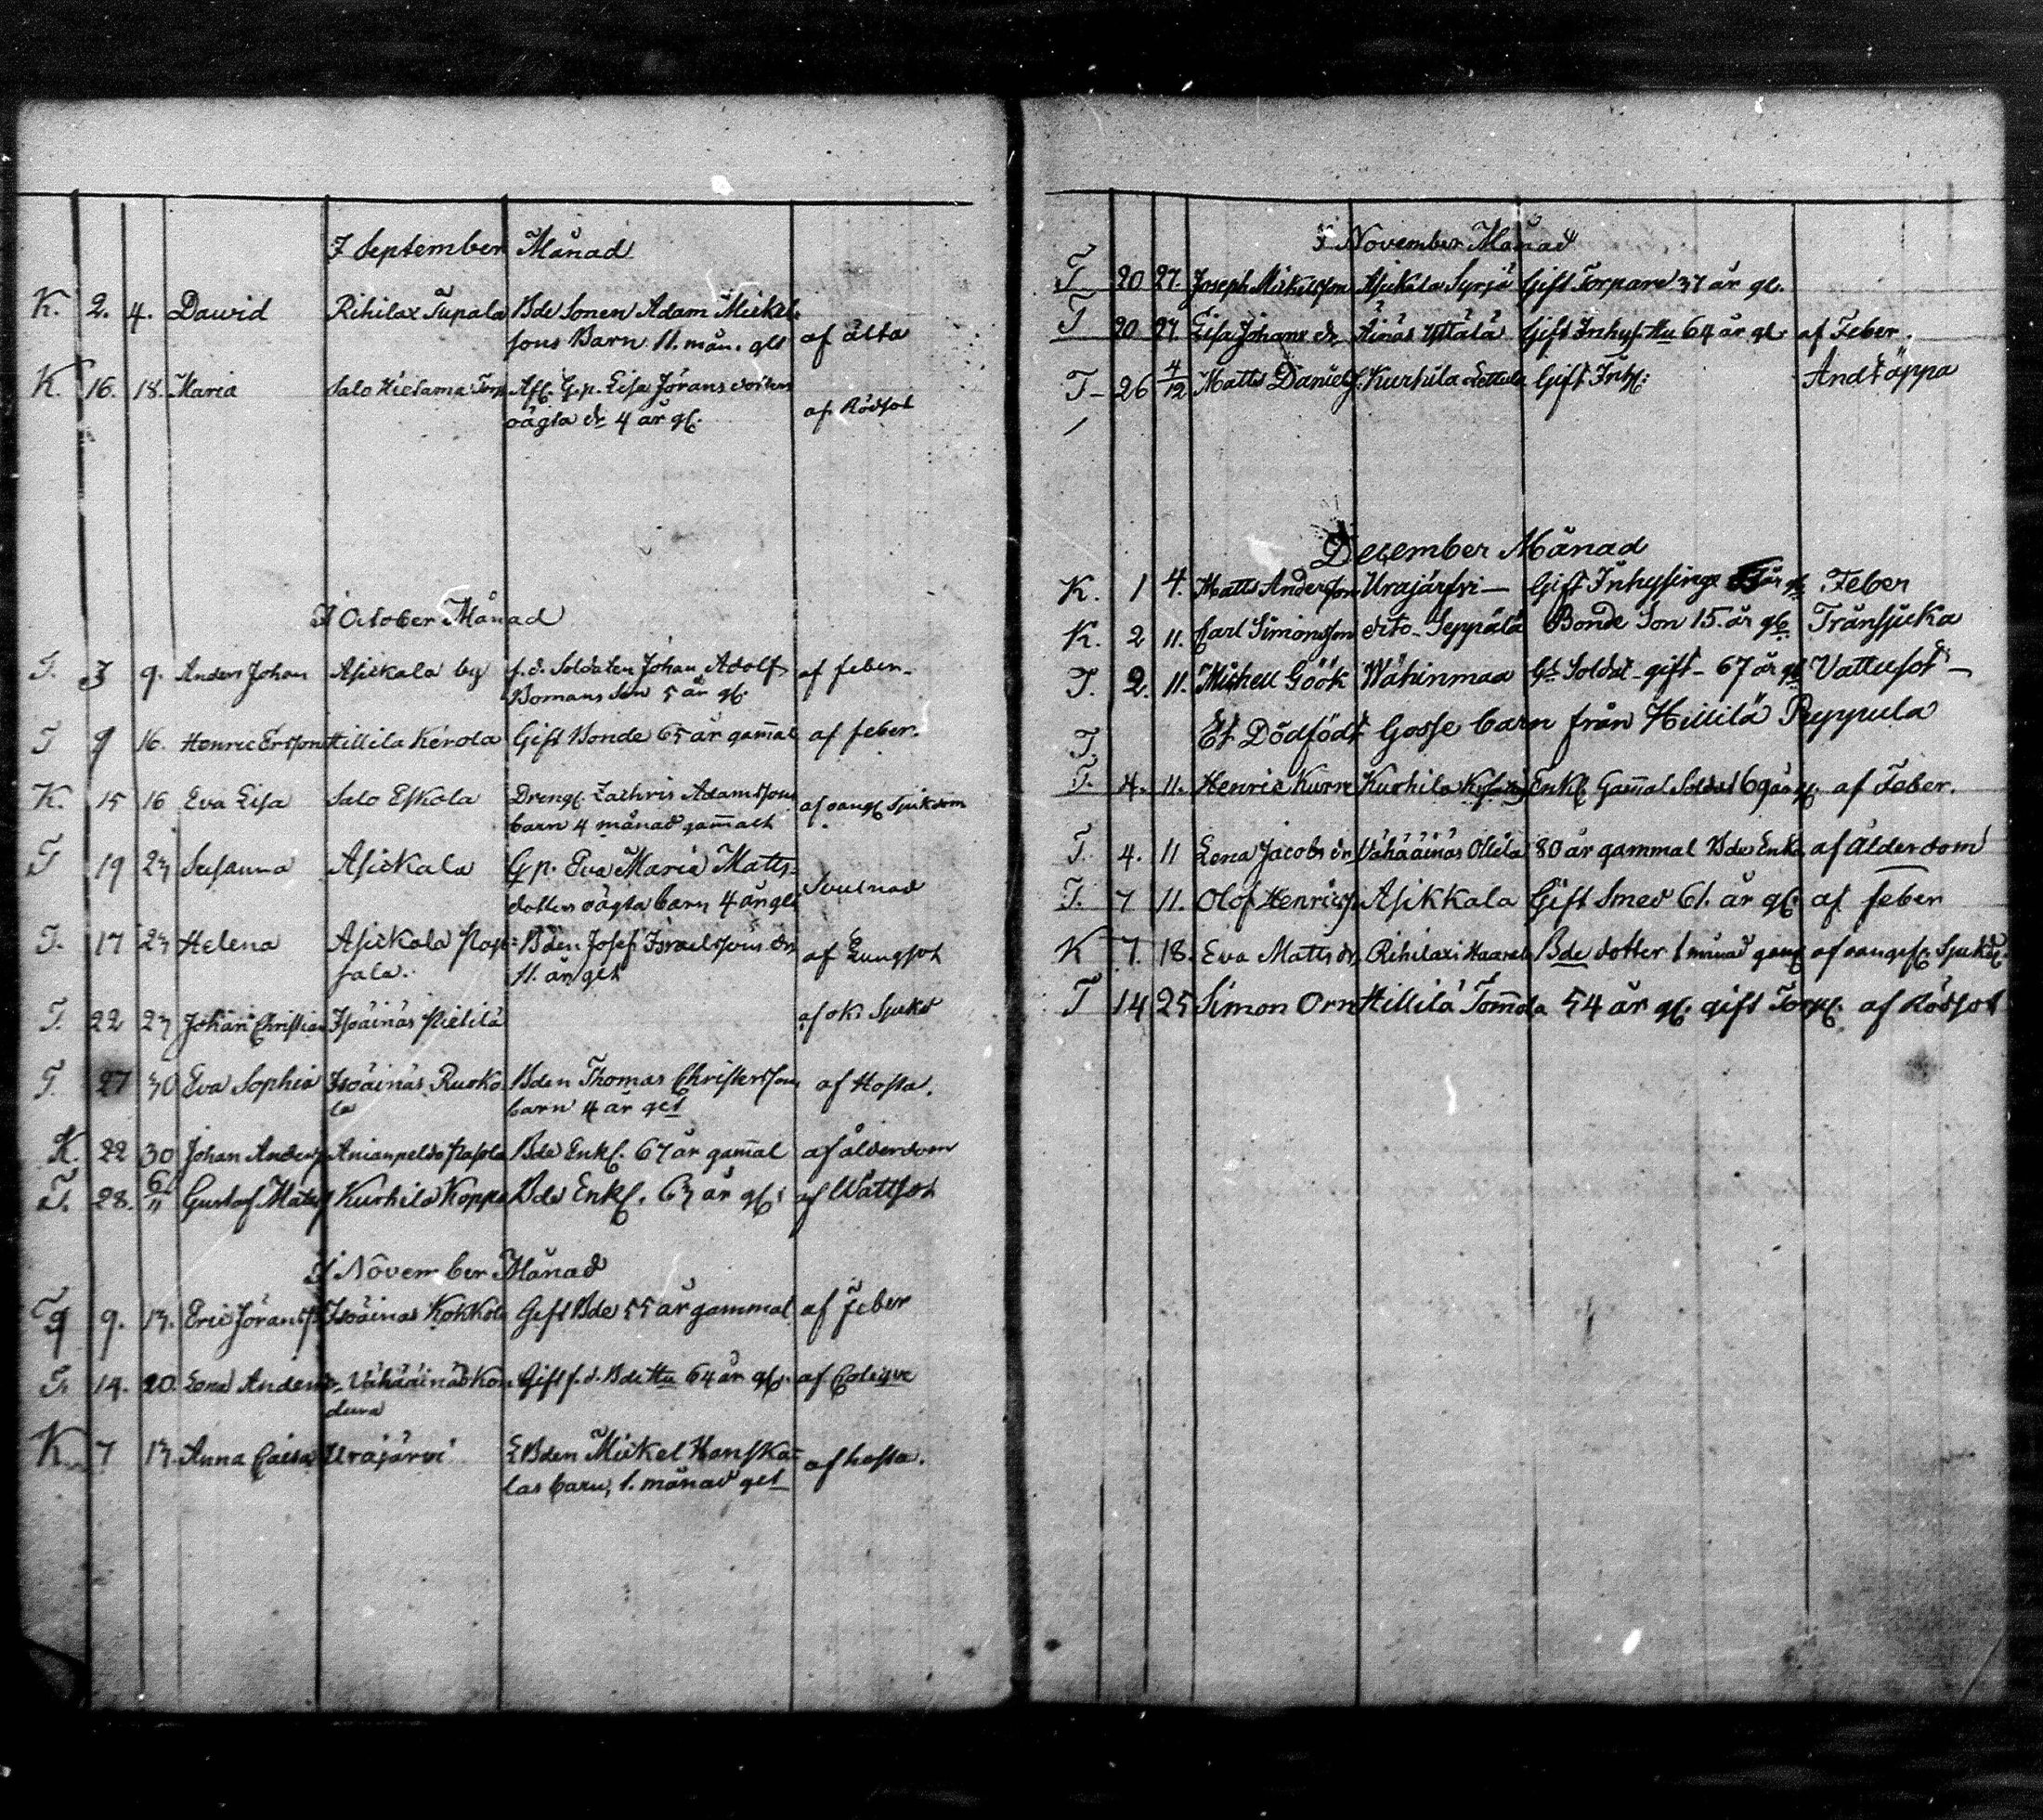 I September Månad
K. 2. 4. Dawid Rihilax Tupala Bde Sonen Adam Mickel-
sons Barn 11. mån. glt af älta
K. 16. 18. Maria Salo Hietama Torp Afl. G.p. Lisa Jörans dotters
oägta dr 4 år gl. af Rödsot
I October Månad
T. 3 9. Anders Johan Asickala by f.d. Soldaten Johan Adolf
Bomans Son 5 år gl. af feber.
T 9 16. Henric Ersson Hillila Kerola Gift Bonde 65 år gam̄al af feber.
K. 15 16 Eva Lisa Salo Eskola Drengs. Zachris Adamssons
barn 4 månad gam̄alt af oangs Sjukdom
T 19 23 Susanna Asickala Gp. Eva Maria Matts-
dotters oägta barn 4 år glt Svulnad
T. 17 23 Helena Asickala Pas-
sala. Bden Josef Israelssons dr
11. år glt af Lungsot
T. 22 23 Johan Christian Isoäinäs Pietilä af ok. Sjukd
T. 27 30 Eva Sophia Isoäinäs Rusko
la Bden Thomas Christerssons
barn 4 år glt af Hosta.
K. 22 30 Johan Anderss Anianpeldo Pasola Bde Enkl. 67 år gam̄al af ålderdom
T. 28. 6/11 Gustaf Matss Kurhila Koppa Bde Enkl. 63 år gl: af Wattsot
I November Månad
T 9. 13. Eric Jöranss Isoäinas Kokkola Gift Bde 55 år gammal af feber
T. 14. 20. Lena Anders dr Vähääinäs Kon
dura Gift f.d. Bde Hu 64 år gl. af Colique
K 7 13. Anna Caisa Urajärvi LBden Mickel Hanska-
las barn, 1. månad glt af hosta.
I November Månad
T 20 27. Joseph Mickelsson Asickala Syrjä Gift Torpare 37 år gl.
T 20 27. Lisa Johans dr Äinäs Yttälä Gift Inhys. Hu 64 år gl. af Feber.
T- 26 4/12 Matts Daniels. Kurhila Lettula Gift Inhs: Andtäppa
December Månad
K. 1 4. Matts Andersson Urajärfvi - Gift Inhysinge år gl Feber
K. 2 11. Carl Simonsson dito - Seppälä Bonde Son 15. år gl. Trånsjuka
T. 2. 11. Michell Göök Wähinmaa Gl. Soldat - gift - 67 år gl Vattusot -
T. Et Dödfödt Gosse barn från Hillilä Peyppula
T. 4. 11. Henric Kurre Kurhila Enkl Gam̄al Soldat 69 år gl. af Feber.
T. 4. 11 Lena Jacobs dr Vähääinäs Ollila 80 år gammal Bde Enka af Ålderdom
T. 7 11. Olof Henricss. Asikkala Gift Smed 61. år gl. af feber
K 7. 18. Eva Matts dr. Rihilaxi Haarala Bde dotter 1 månad gam̄l af oangifs Sjukd.
T 14 25 Simon Orn Hillilä Tom̄ola 54 år gl. gift Torps. af Rödsot